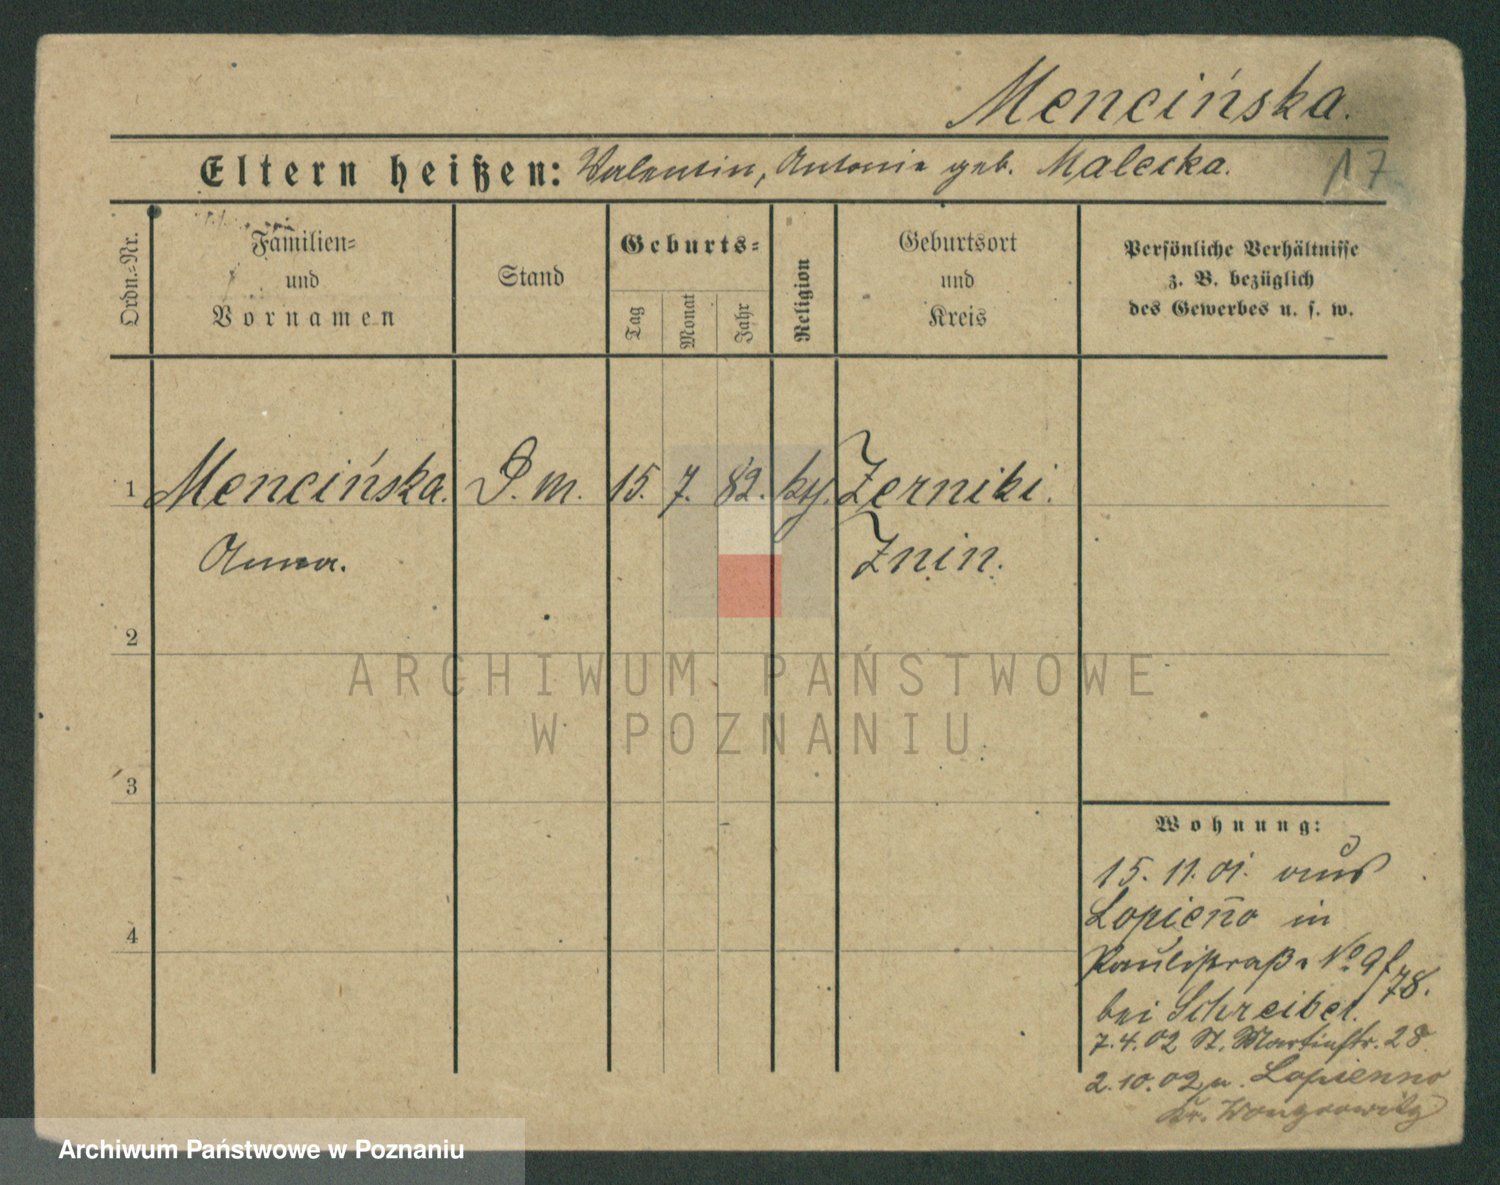 Mencińska.
Eltern heißen: Valentin, Antonie geb. Malecka.
17
Ordn.-Nr.
Familien-
und
Vornamen
Stand
Geburts-
Tag
Monat
Jahr
Religion
Geburtsort
und
Kreis
Persönliche Verhältnisse
z. B. bezüglich
des Gewerbes u. s. w.
1 Mencińska. D. m. 15. 7. 82. kth. Zerniki.
Anna. Znin.
2
ARCHIWUM PAŃSTWOWE
W POZNANIU
3
Wohnung:
15. 11. 01. aus
Lopieno in
Paulistraße No 9
78.
bei Schreiber.
4
7. 4. 02 St. Martinstr. 28
2. 10. 02 n. Lopienno
Kr. Wongrowitz
Archiwum Państwowe w Poznaniu